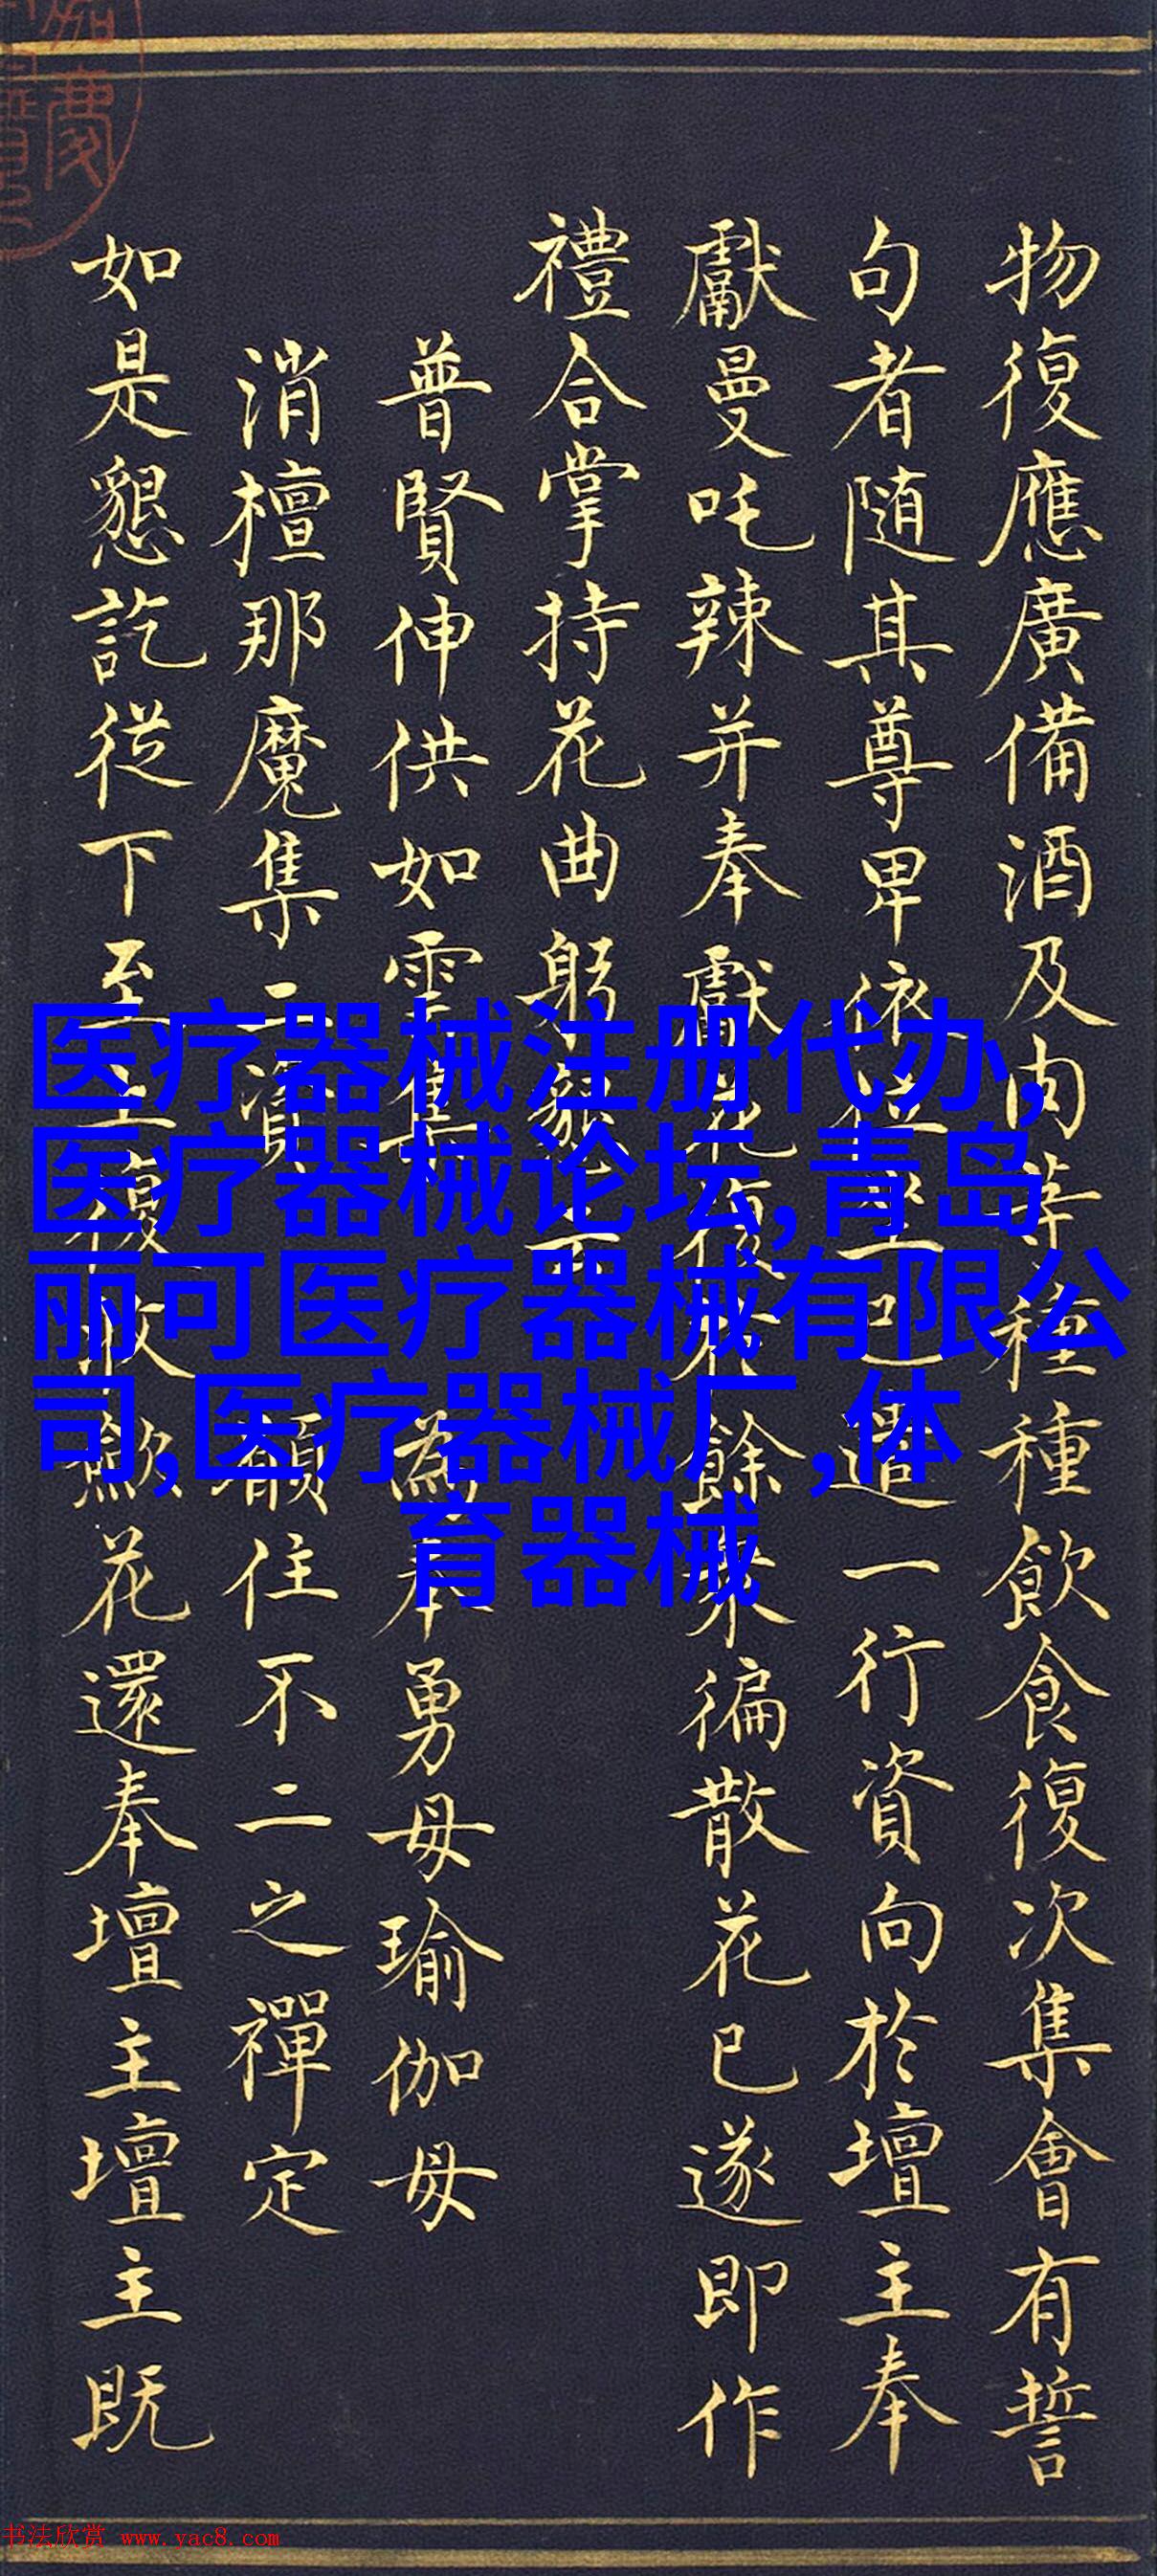 物復應廣備酒及肉等種種飲食復次集會有誓
句者随其尊卑依位坐已遣一行資向於壇主奉
獻曼吒辣并奉獻花後於餘衆徧散花已遂即作
禮合掌持花曲躬
普賢伸供如雲集 為奉勇母瑜伽母
消檀那魔集二資 願住不二之禪定
如是懇訖從下至上復收歛花還奉壇主壇主既
医疗器械注册代办,
医疗器械论坛,青岛
丽可医疗器械有限公
司,医疗器械厂,体
育器械
书法欣赏 www.yac8.com